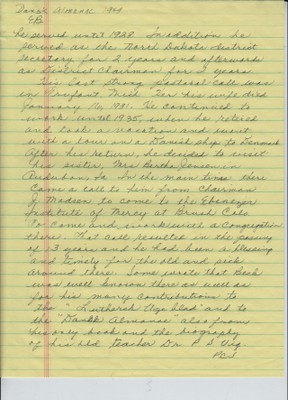 Dansk Almanak 1944
EB.
he served until 1928. In addition he
served as the North Dakota district
secretary for 2 years and afterwards
as District Chairman for 3 years
His last strong pastoral call was
in Trufant, Mich. Her his wife died
January 16, 1931. He continued to
work until 1935, when he retired
and took a vacation and went
with a tour on a Danish ship to Denmark
After his return, he decided to visit
his sister, Mrs. Jensen in
Audubon, Ia. In the main time there
came a call to him from Chairman
J. Madsen to come to the Ebenezer
Institute of Mercy at Brush Colo.
To come and work with a Congregation
there. That call resulted in the passing
of 3 years and he had been a blessing
and timely for the old and sick
around there. Some wrote that Beck
was well known there as well as
for his many contributions to
the "Luthersk Ugeblad" and to
the "Dansk Almanac" also from
his only book and the biography
of his old teacher Dr. P S Vig.
PCJ